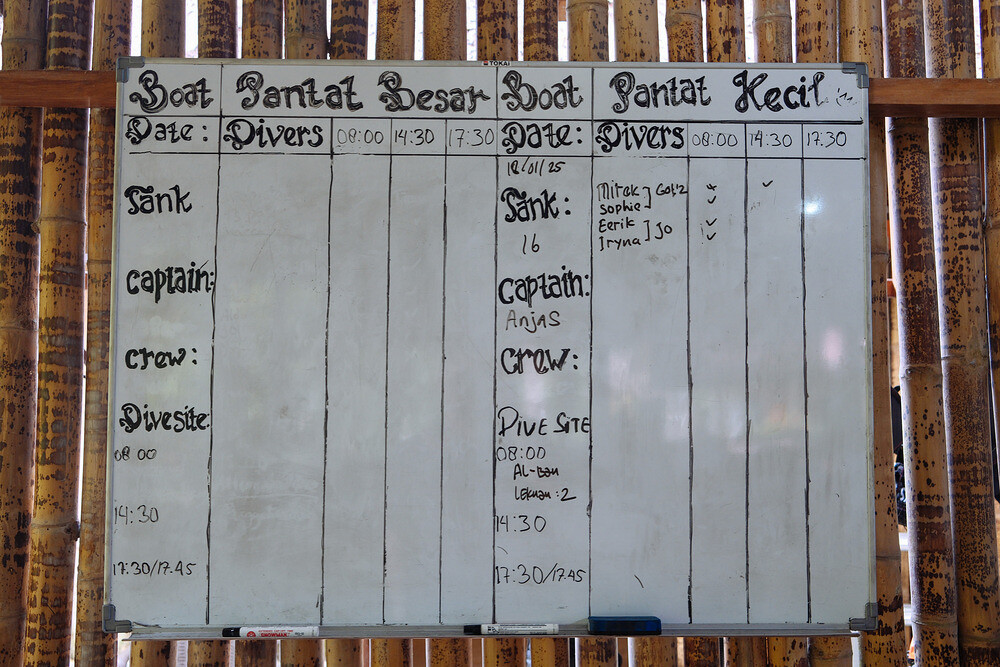 TOKAI
Boat Pantat Besar Boat Pantat Kecil
Date: Divers 08:00 14:30 17:30 Date: Divers 08:00 14:30 17:30
18/01/25
Tank
Tank:
16
Mitek
Sophie
Eerik
Iryna ] Jo
Captain:
Captain:
Anjas
Crew:
Crew:
Divesite:
DIVE SITE
08 00
08:00
14:30
14:30
17:30/17.45
17:30/17.45
SNOWMAN